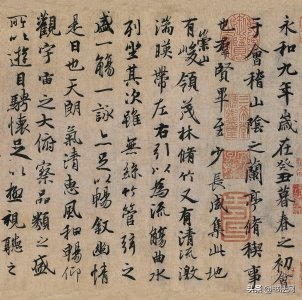 永和九年歲在癸丑暮春之初會
于會稽山陰之蘭亭脩稧事
也羣賢畢至少長咸集此地
有崇山峻領茂林脩竹又有清流激
湍暎帶左右引以為流觴曲水
列坐其次雖無絲竹管弦之
盛一觴一詠亦足以暢敘幽情
是日也天朗氣清惠風和暢仰
觀宇宙之大俯察品類之盛
所以遊目騁懷足以極視聽之
头条